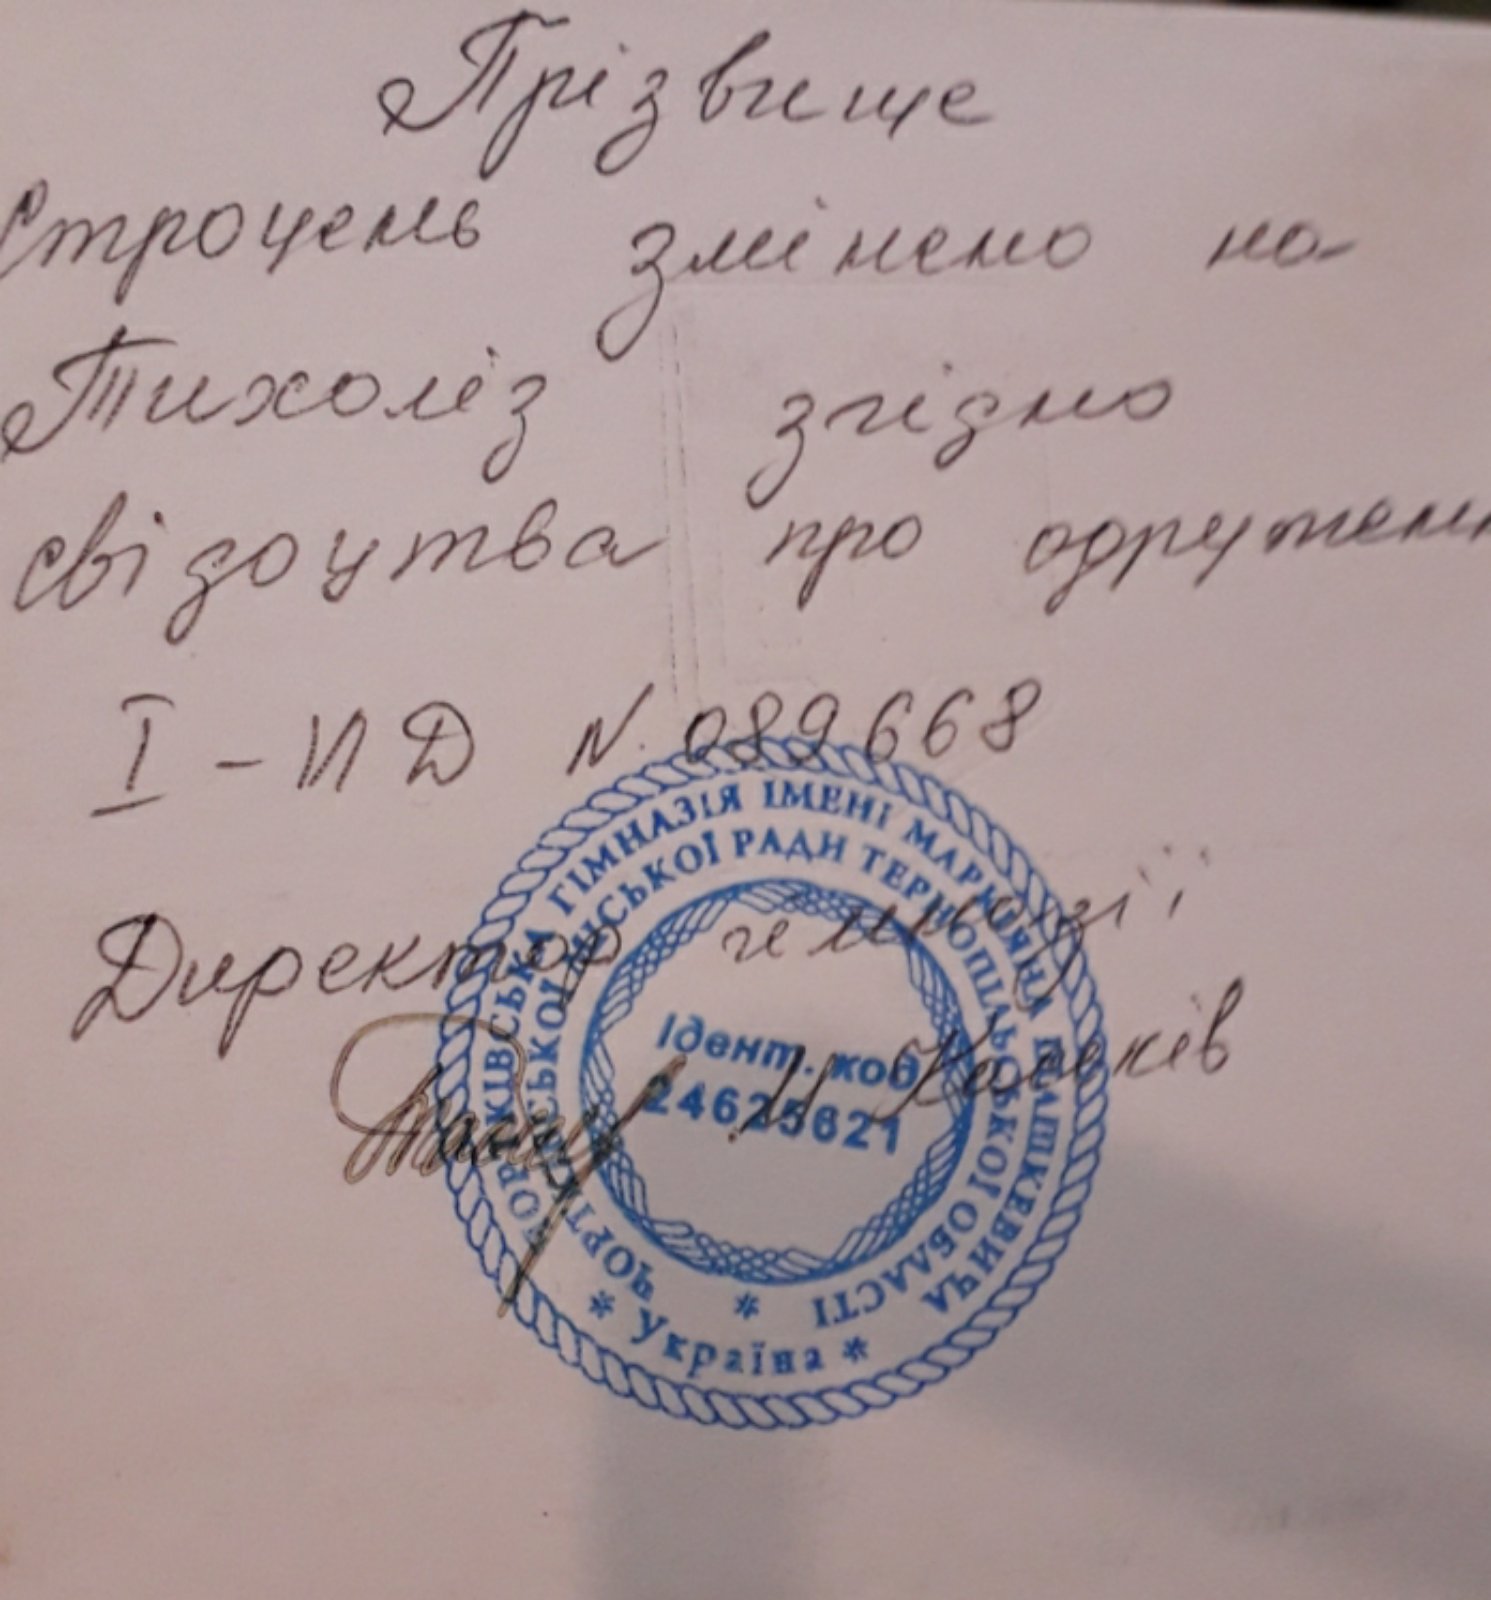 Прізвище
Строцень змінено на
Тихоліз згідно
свідоцтва про одружен
I - ИД N 089668
Директор гімназії
Н Каськів
ЧОРТКІВСЬКА ГІМНАЗІЯ ІМЕНІ МАРКІЯНА ШАШКЕВИЧА
ЧОРТКІВСЬКОЇ МІСЬКОЇ РАДИ ТЕРНОПІЛЬСЬКОЇ ОБЛАСТІ
Ідент. код
24625621
* Україна *